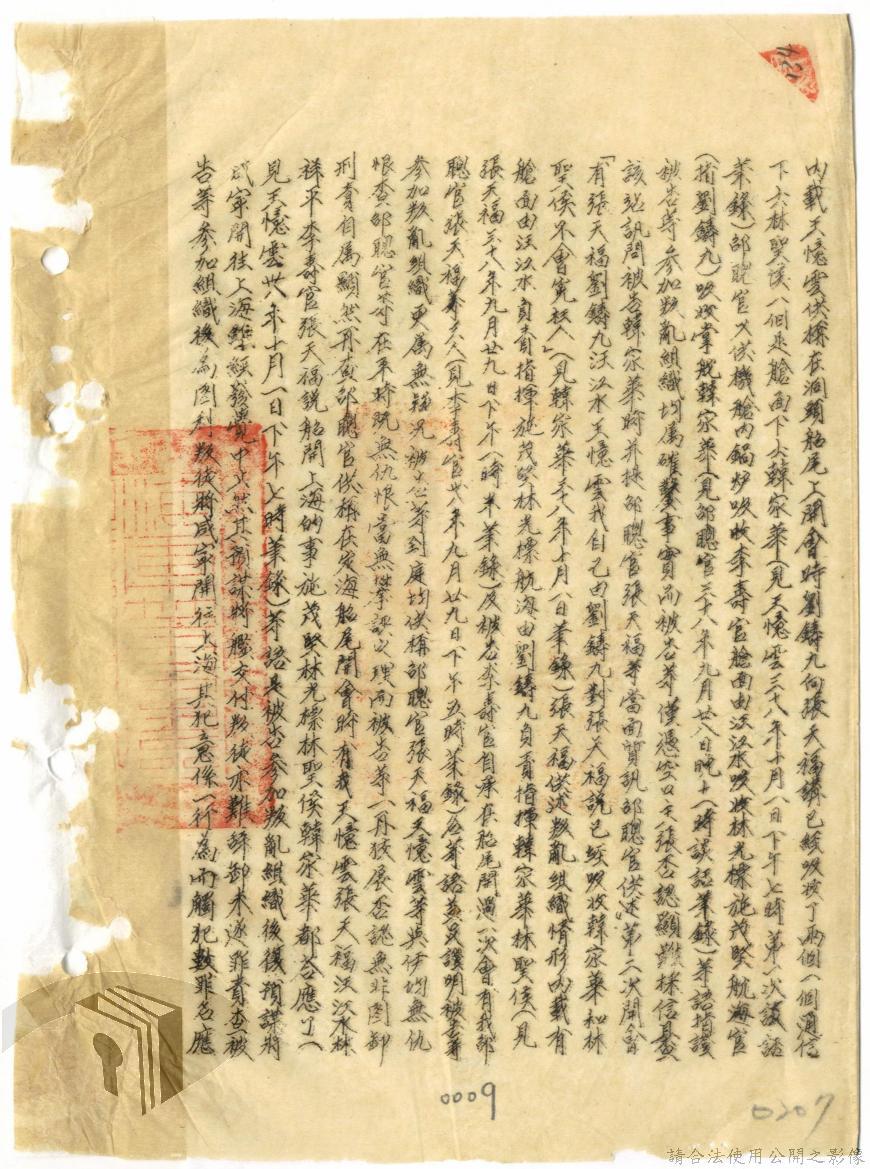 內載王憶雲供稱在洞頭船尾上開會時劉鑄九向張天福講已經吸收了兩個一個通信
下士林聖俟一個是艙面下士韓家華（見王憶雲三十八年十月一日下午七時第一次談話
筆錄）邱聰官又供機艙內鍋炉吸收李壽官艙面由沃江水吸收林光標施茂癸航海官
（指劉鑄九）吸收掌舵韓家華（見邱聰官三十八年九月廿八日晚十一時談話筆錄）等語指證
被告等參加叛亂組織均屬確鑿事實而被告等僅憑空口主張否認顯難採信且
該站訊問被告韓家華時并提邱聰官張天福等當面質訊邱聰官供述第二次開會
「有張天福劉鑄九沃江水王憶雲我自己由劉鑄九對張天福說已經吸收韓家華和林
聖俟不會冤枉人（見韓家華三十八年十月八日筆錄）張天福供述叛亂組織情形內載有
艙面由沃江水負責指揮施茂癸林光標航海由劉鑄九負責指揮韓家華林聖俟（見
張天福三十八年九月廿九日下午一時半筆錄）及被告李壽官自承在船尾開過一次會有我邱
聰官張天福等六人（見李壽官卅八年九月廿九日下午五時筆錄）各等語益足證明被告等
參加叛亂組織更屬無疑況被告等到庭均供稱邱聰官張天福王憶雲等與伊均無仇
恨查邱聰官等在平時既無仇恨當無攀誣之理而被告等一再狡展否認無非圖卸
刑責自屬顯然再查邱聰官供稱在定海船尾開會時有我王憶雲張天福沃江水林
祥平李壽官張天福說船開上海的事施茂癸林光標林聖俟韓家華都答應了（
見王憶雲卅八年十月一日下午七時筆錄）等語是被告參加叛亂組織後復預謀將
咸寧開往上海雖經發覺中止然其預謀將艦交付叛徒亦難辭卸未遂罪責查被
告等參加組織後為圖利叛徒將咸寧開往上海其犯意係一行為而觸犯數罪名應
0009
0207
請合法使用公開之影像